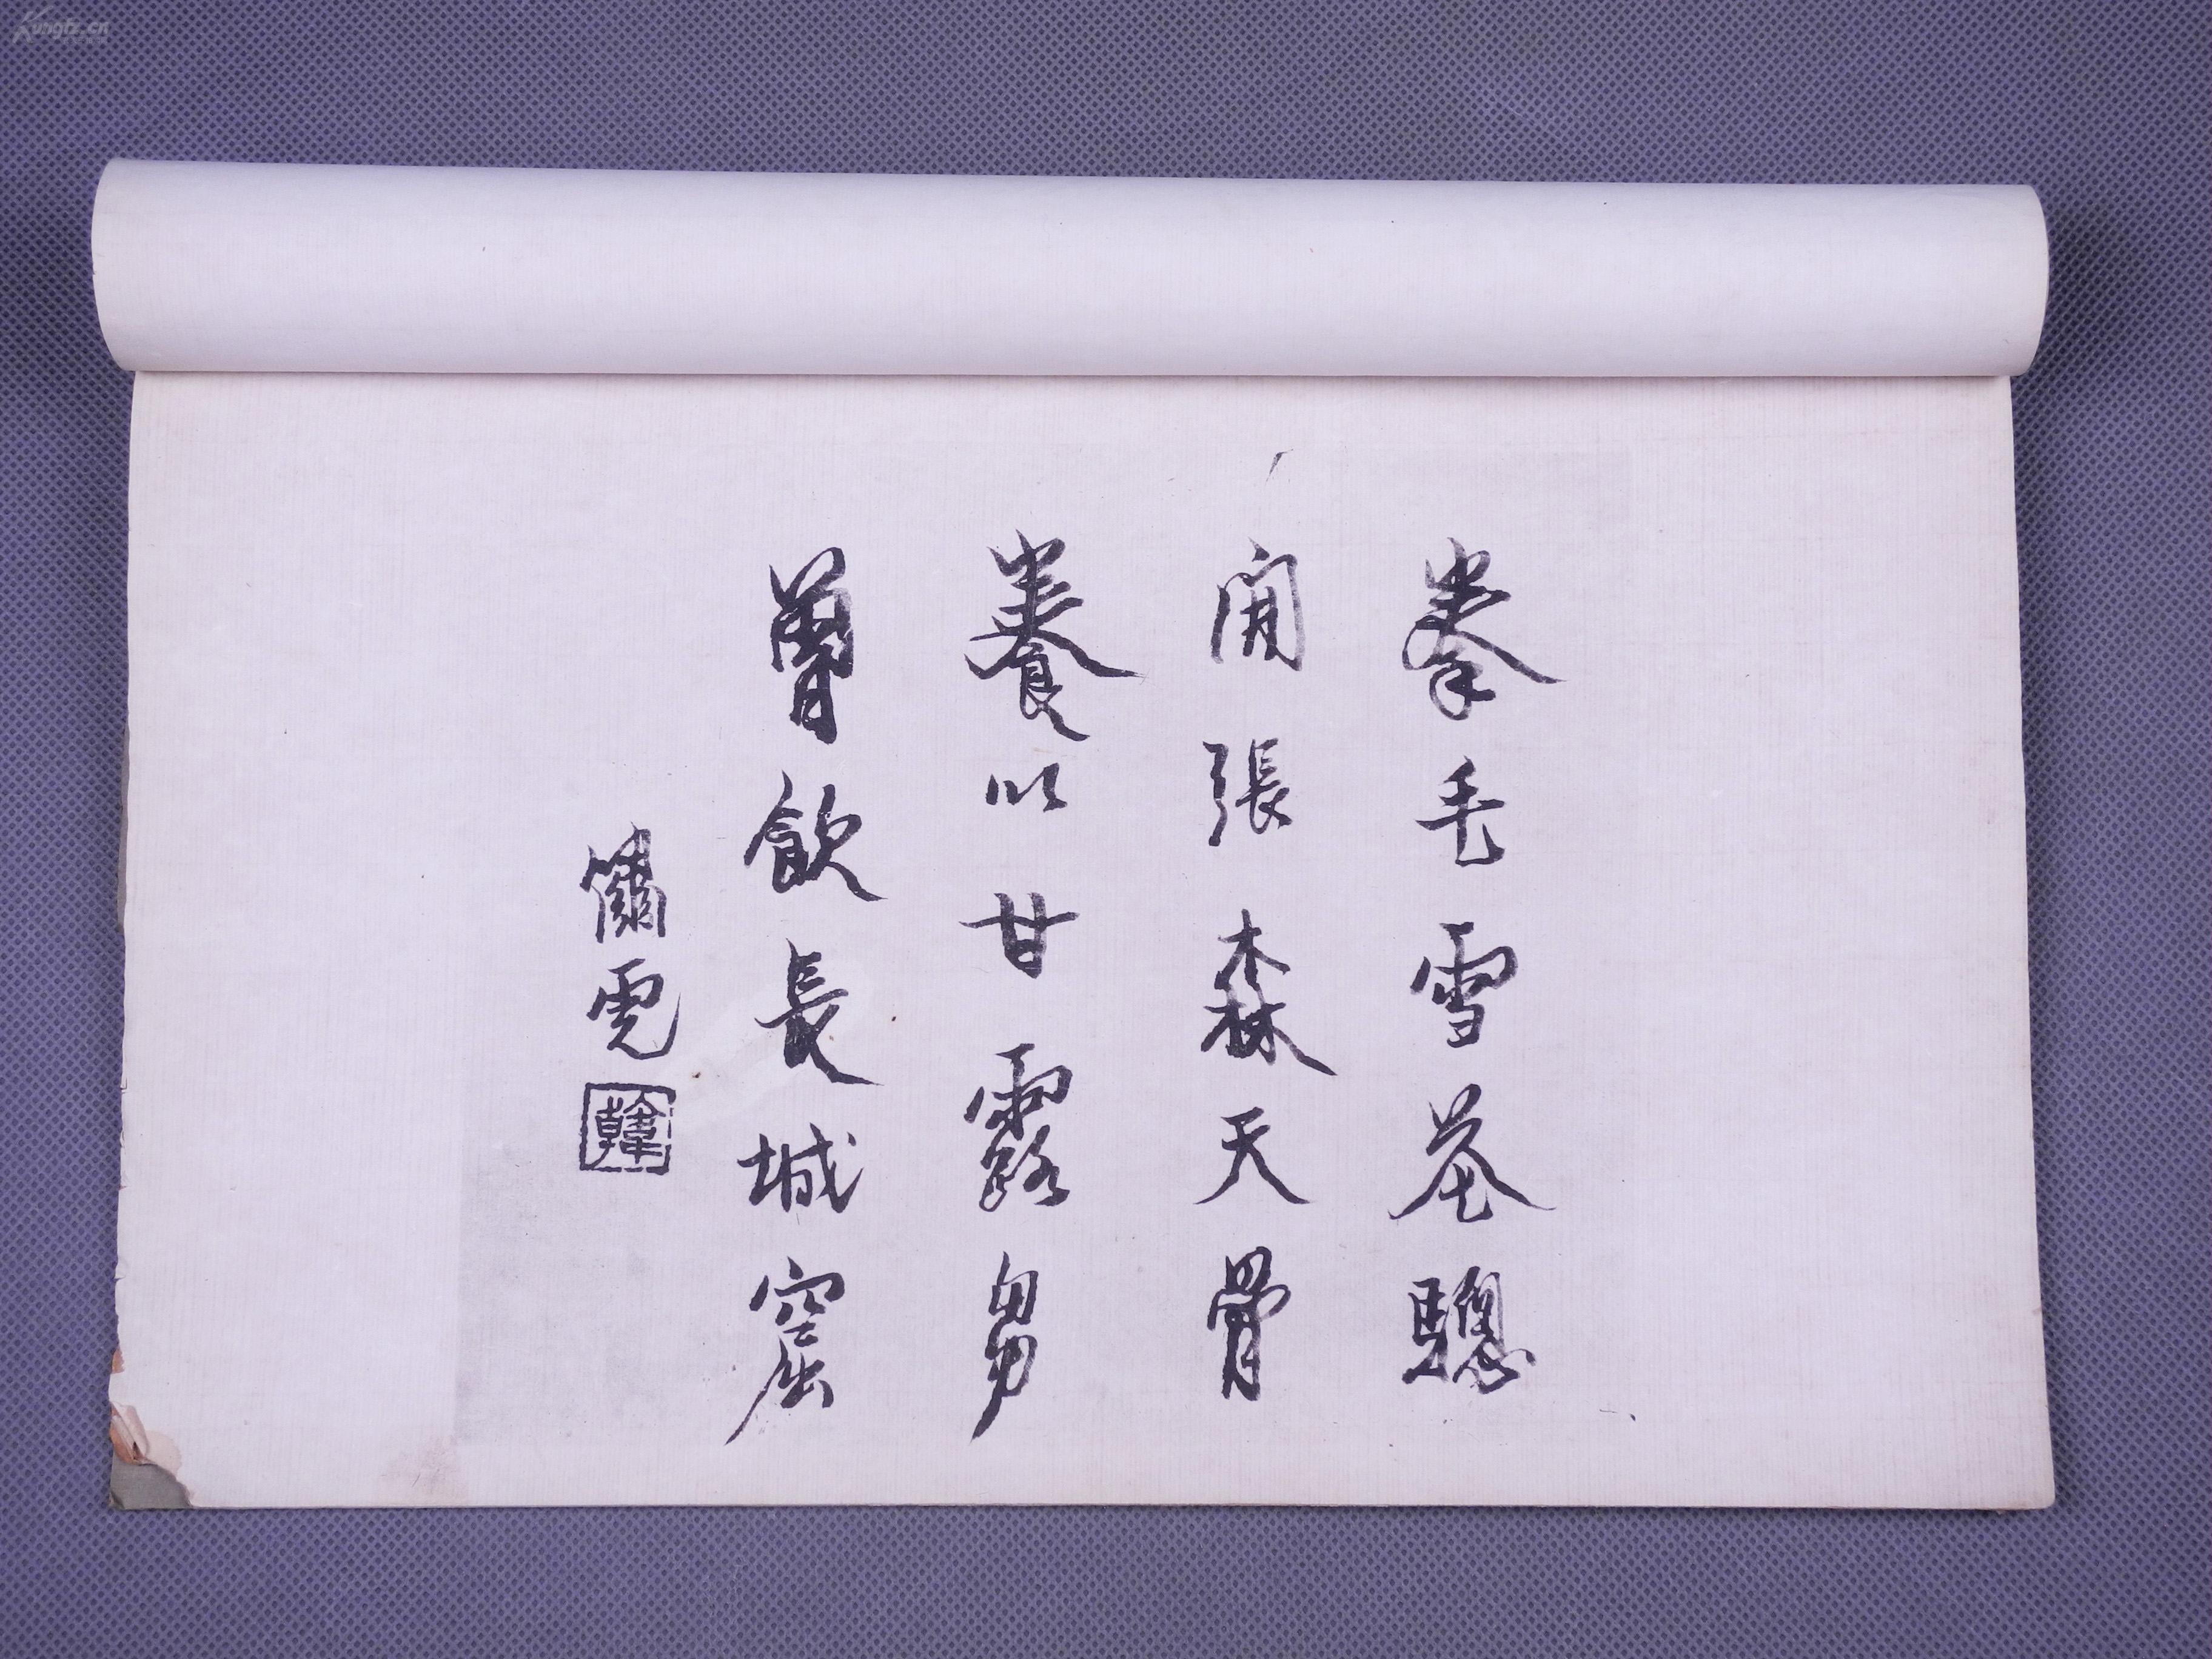 拳毛雪花驄
開張森天骨
養以甘露芻
曾飲長城窟
儵雲
韓
Kongfz.cn